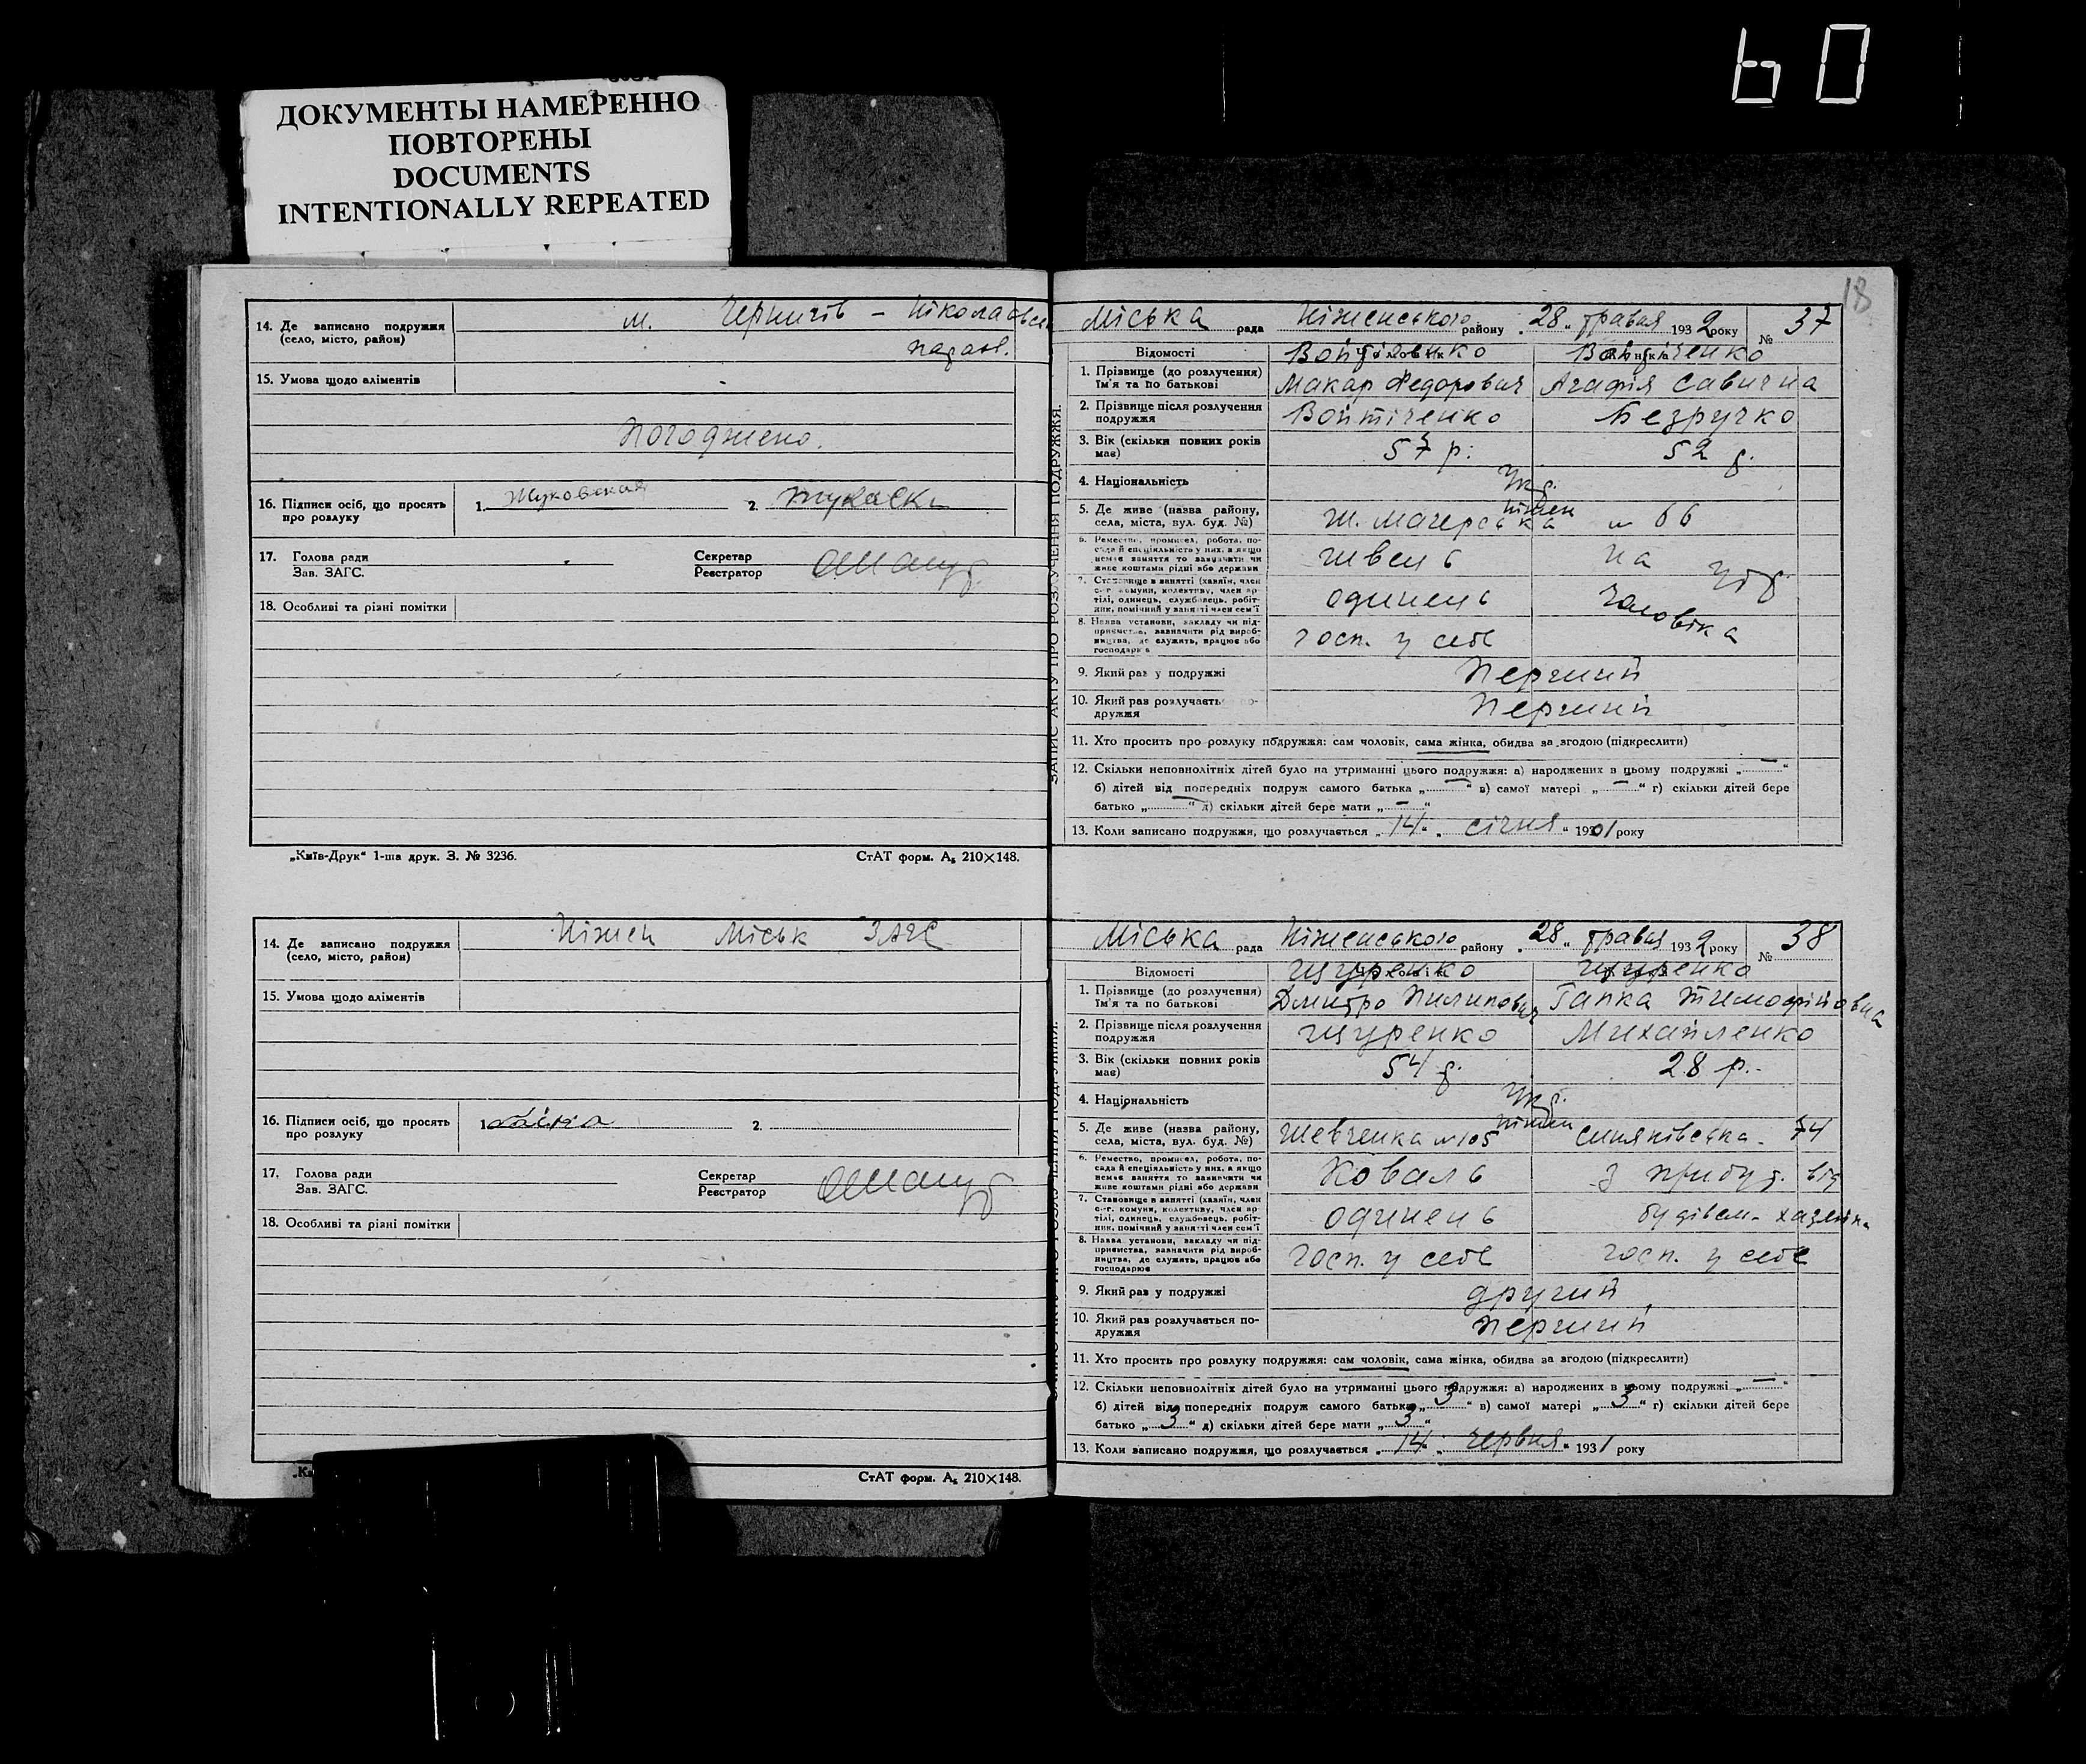 60
ДОКУМЕНТЫ НАМЕРЕННО
ПОВТОРЕНЫ
DOCUMENTS
INTENTIONALLY REPEATED
14. Де записано подружжя (село, місто, район)
м. Чернигів – Ніколаєвск
парахв.
15. Умова щодо аліментів
Погоджено.
16. Підписи осіб, що просять про розлуку
1. Жуковская 2.
17. Голова ради
Зав. ЗАГС.
Секретар
Реєстратор
18. Особливі та різні помітки
„Київ-Друк“ 1-ша друк. З. № 3236. СтАТ форм. А₅ 210×148.
14. Де записано подружжя (село, місто, район)
Ніжен Міськ ЗАГС
15. Умова щодо аліментів
16. Підписи осіб, що просять про розлуку
1. 2.
17. Голова ради
Зав. ЗАГС.
Секретар
Реєстратор
18. Особливі та різні помітки
СтАТ форм. А₅ 210×148.
18
ЗАПИС АКТУ ПРО РОЗЛУЧЕННЯ ПОДРУЖЖЯ.
Міська рада Ніженського району „28“ травня 1932 року № 37
Відомості Чоловік Жінка
Войтіченко Войтіченко
1. Прізвище (до розлучення) ім'я та по батькові
Макар Федорович Агафія Савична
2. Прізвище після розлучення подружжя
Войтіченко Безручко
3. Вік (скільки повних років має)
57 р. 52 р.
4. Національність
Укр.
5. Де живе (назва району, села, міста, вул. буд. №)
Ніжен
Ш. Магерська № 66
6. Ремество, промисел, робота, посада й спеціяльність у них, а якщо немає заняття то зазначити чи живе коштами рідні або держави
швець на утр.
7. Становище в занятті (хазяїн, член с-г. комуни, колективу, член артілі, одинець, службовець, робітник, помічний у занятті член сем'ї
одинець чоловіка
8. Назва установи, закладу чи підприємства, зазначити рід виробництва, де служить, працює або господарює
госп. у себе
9. Який раз у подружжі
Перший
10. Який раз розлучається подружжя
Перший
11. Хто просить про розлуку подружжя: сам чоловік, сама жінка, обидва за згодою (підкреслити)
12. Скільки неповнолітніх дітей було на утриманні цього подружжя: а) народжених в цьому подружжі „—“
б) дітей від попередніх подруж самого батька „—“ в) самої матері „—“ г) скільки дітей бере
батько „—“ д) скільки дітей бере мати „—“
13. Коли записано подружжя, що розлучається „14“ „січня“ 1901 року
Міська рада Ніженського району „28“ травня 1932 року № 38
Відомості
Щуренко Щуренко
1. Прізвище (до розлучення) ім'я та по батькові
Дмитро Пилипович Гапка Тимофіївна
2. Прізвище після розлучення подружжя
Щуренко Михайленко
3. Вік (скільки повних років має)
54 р. 28 р.
4. Національність
Укр.
5. Де живе (назва району, села, міста, вул. буд. №)
Ніжен
Шевченка № 105 Синяківська - 74
6. Ремество, промисел, робота, посада й спеціяльність у них, а якщо немає заняття то зазначити чи живе коштами рідні або держави
Коваль з прибут. від
7. Становище в занятті (хазяїн, член с-г. комуни, колективу, член артілі, одинець, службовець, робітник, помічний у занятті член сем'ї
одинець будівель
8. Назва установи, закладу чи підприємства, зазначити рід виробництва, де служить, працює або господарює
госп. у себе госп. у себе
9. Який раз у подружжі
другий
10. Який раз розлучається подружжя
Перший
11. Хто просить про розлуку подружжя: сам чоловік, сама жінка, обидва за згодою (підкреслити)
12. Скільки неповнолітніх дітей було на утриманні цього подружжя: а) народжених в цьому подружжі „—“
б) дітей від попередніх подруж самого батька „3“ в) самої матері „3“ г) скільки дітей бере
батько „3“ д) скільки дітей бере мати „3“
13. Коли записано подружжя, що розлучається „14“ „червня“ 1931 року